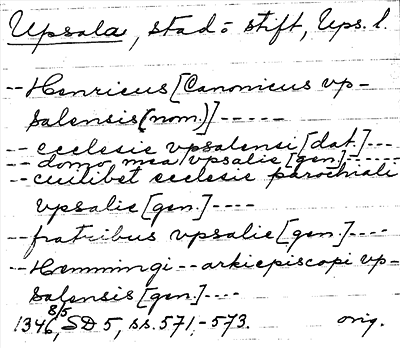 Upsala, stad o stift, Ups. l.
-- Henricus [Canonicus vp-
salensis (nom.)] -----
-- ecclesie vpsalensi [dat.] ---
-- domo mea vpsalie [gen] -----
-- cuilibet ecclesie parochiali
vpsalie [gen.] ----
-- fratribus vpsalie [gen.] ----
-- Hemmingi -- arkiepiscopi vp-
salensis [gen.] ----
1346 8/5, SD 5, ss. 571-573. orig.